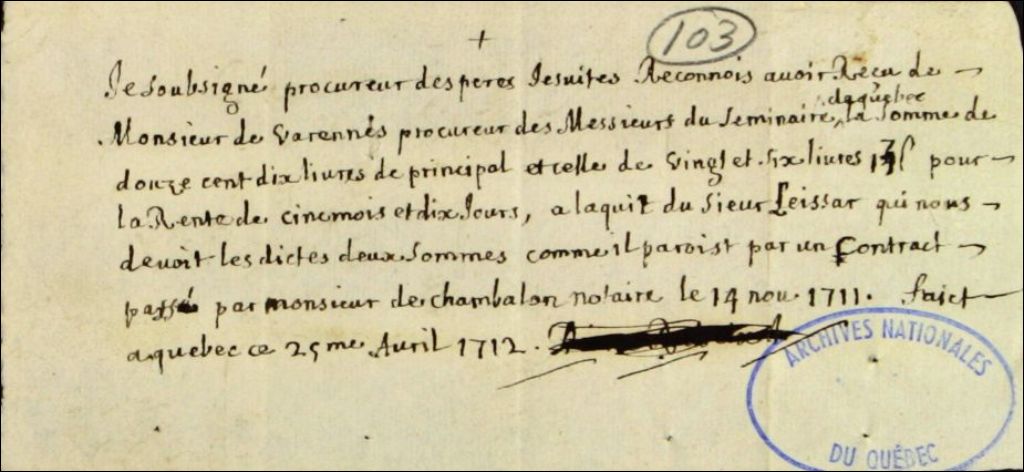 103
+
Je soubsigné procureur des peres Jesuites Reconnois avoir Recu de
de quebec
Monsieur de Varennes procureur des Messieurs du Seminaire, la somme de
douze cent dix livres de principal et celle de vingt et six livres pour
la Rente de cincmois et dix Jours, a laquit du Sieur Leissar qui nous
devoit les dictes deux sommes comme il paroist par un Contract
passé par monsieur de chambalon notaire le 14 nov. 1711. faict
a quebec ce 25me Avril 1712.
ARCHIVES NATIONALES
DU QUÉBEC